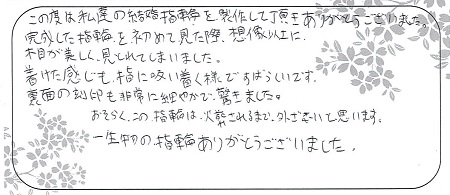 この度は私達の結婚指輪を製作して頂きありがとうございました。
完成した指輪を初めて見た際、想像以上に
木目が美しく、見とれてしまいました。
着けた感じも、指に吸い着く様ですばらしいです。
裏面の刻印も非常に細やかで、驚きました。
おそらく、この指輪は、火葬されるまで、外さないと思います。
一生物の指輪ありがとうございました。